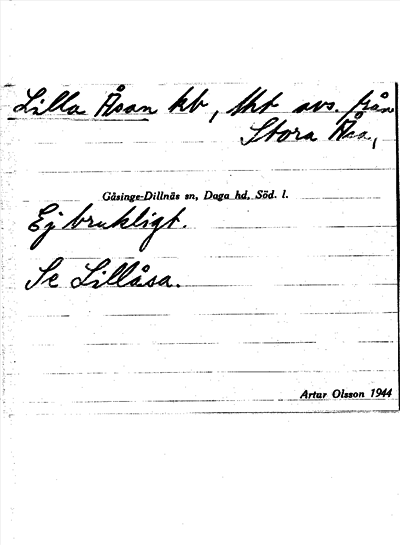 Lilla Åsan kb, 1kt avs. från
Stora Åsa,
Gåsinge-Dillnäs sn, Daga hd, Söd. l.
Ej brukligt.
Se Lillåsa.
Artur Olsson 1944